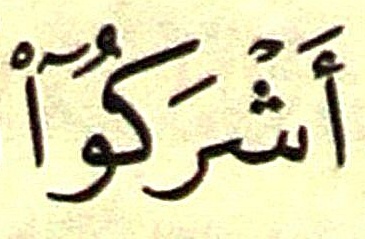 أَشْرَكُوٓاْ